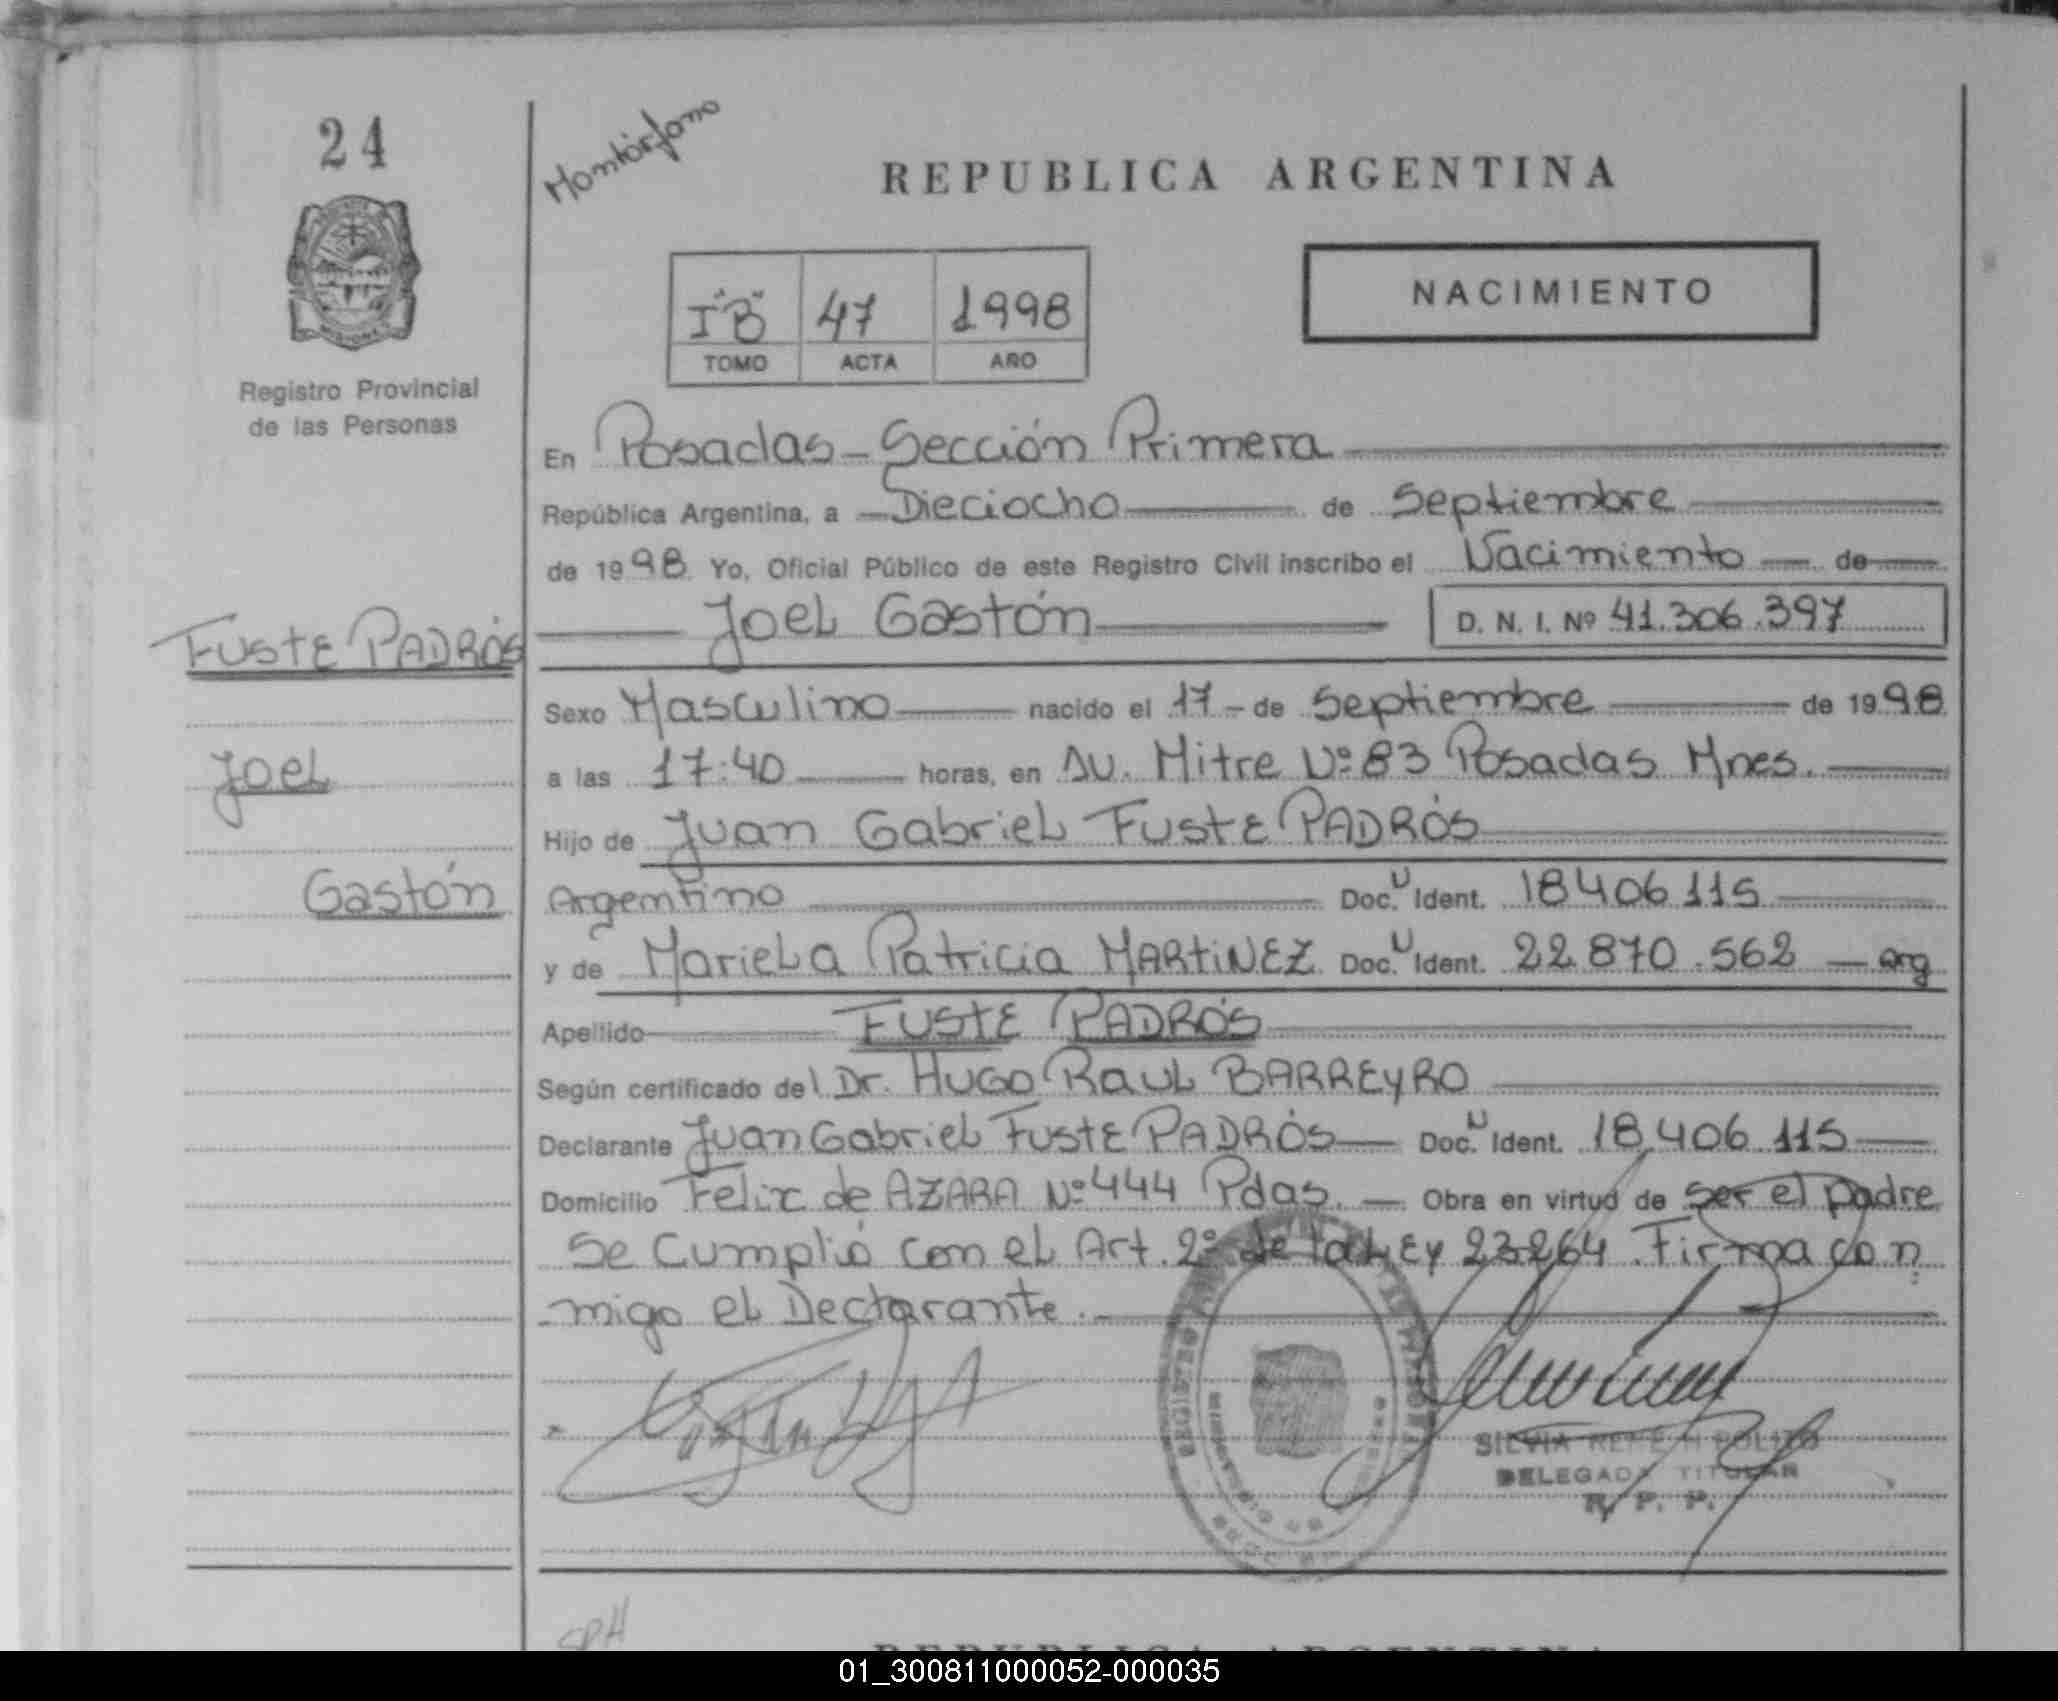 24
Montórfano
REPUBLICA ARGENTINA
I "B" 47 1998
TOMO ACTA AÑO
NACIMIENTO
Registro Provincial
de las Personas
En Posadas - Sección Primera
República Argentina, a Dieciocho de Septiembre
de 1998 Yo, Oficial Público de este Registro Civil inscribo el Nacimiento de
Joel Gastón D. N. I. Nº 41.306.397
FUSTE PADRÓS
Joel
Gastón
Sexo Masculino nacido el 17 - de Septiembre de 1998
a las 17:40 horas, en Av. Mitre Nº 83 Posadas Mnes.
Hijo de Juan Gabriel FUSTE PADRÓS
Argentino Doc. U Ident. 18406115
y de Mariela Patricia MARTiNEZ Doc. U Ident. 22.870.562 — arg
Apellido FUSTE PADRÓS
Según certificado del Dr. HUGO RAUL BARREYRO
Declarante Juan Gabriel FUSTE PADRÓS Doc. U Ident. 18.406.115
Domicilio Felix de AZARA Nº 444 Pdas. Obra en virtud de ser el padre
Se Cumplió con el Art. 2º de la Ley 23264. Firma con
migo el Declarante.
DELEGADA TITULAR
R. P. P.
REPUBLICA ARGENTINA
01_300811000052-000035